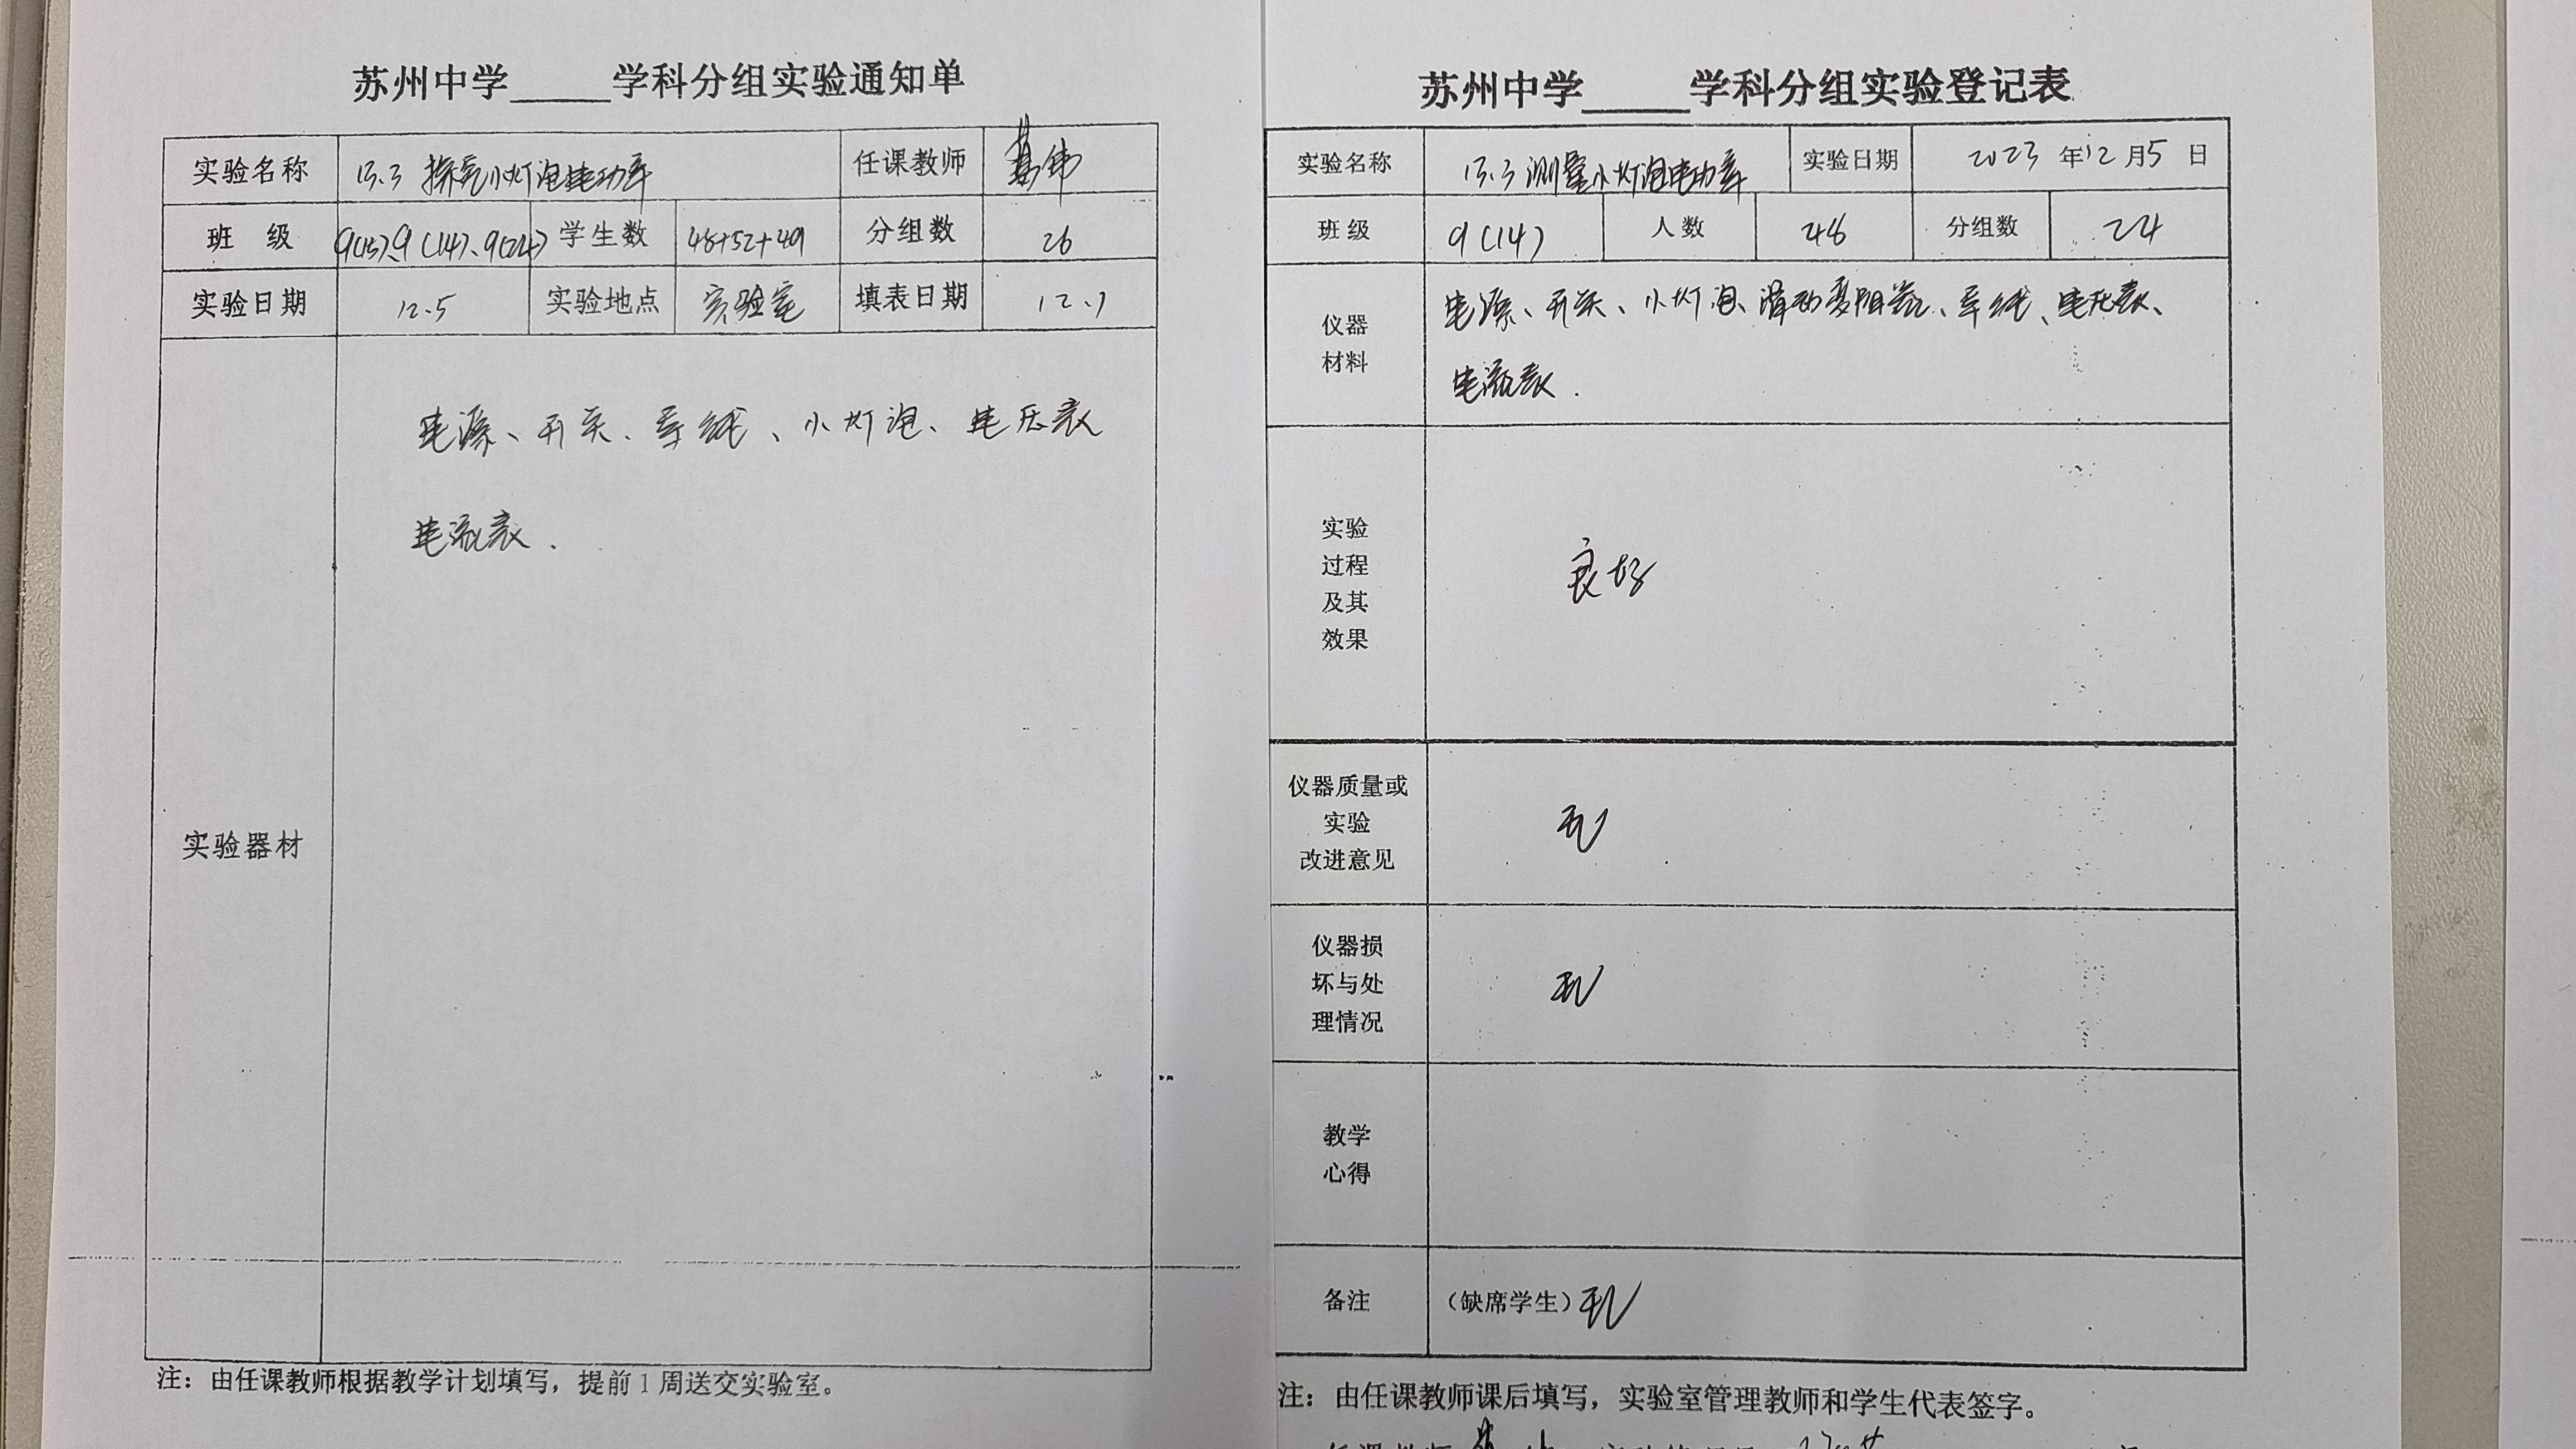 苏州中学_____学科分组实验通知单
实验名称 15.3 探究小灯泡电功率 任课教师 葛伟
班 级 9(15)、9(14)、9(24) 学生数 48+52+49 分组数 26
实验日期 12.5 实验地点 实验室 填表日期 12.1
电源、开关、导线、小灯泡、电压表
电流表.
实验器材
注：由任课教师根据教学计划填写，提前1周送交实验室。
苏州中学_____学科分组实验登记表
实验名称 15.3 测量小灯泡电功率 实验日期 2023 年 12 月 5 日
班级 9(14) 人数 48 分组数 24
仪器
材料
电源、开关、小灯泡、滑动变阻器、导线、电压表、
电流表.
实验
过程
及其
效果
良好
仪器质量或
实验
改进意见
无
仪器损
坏与处
理情况
无
教学
心得
备注 （缺席学生）无
注：由任课教师课后填写，实验室管理教师和学生代表签字。